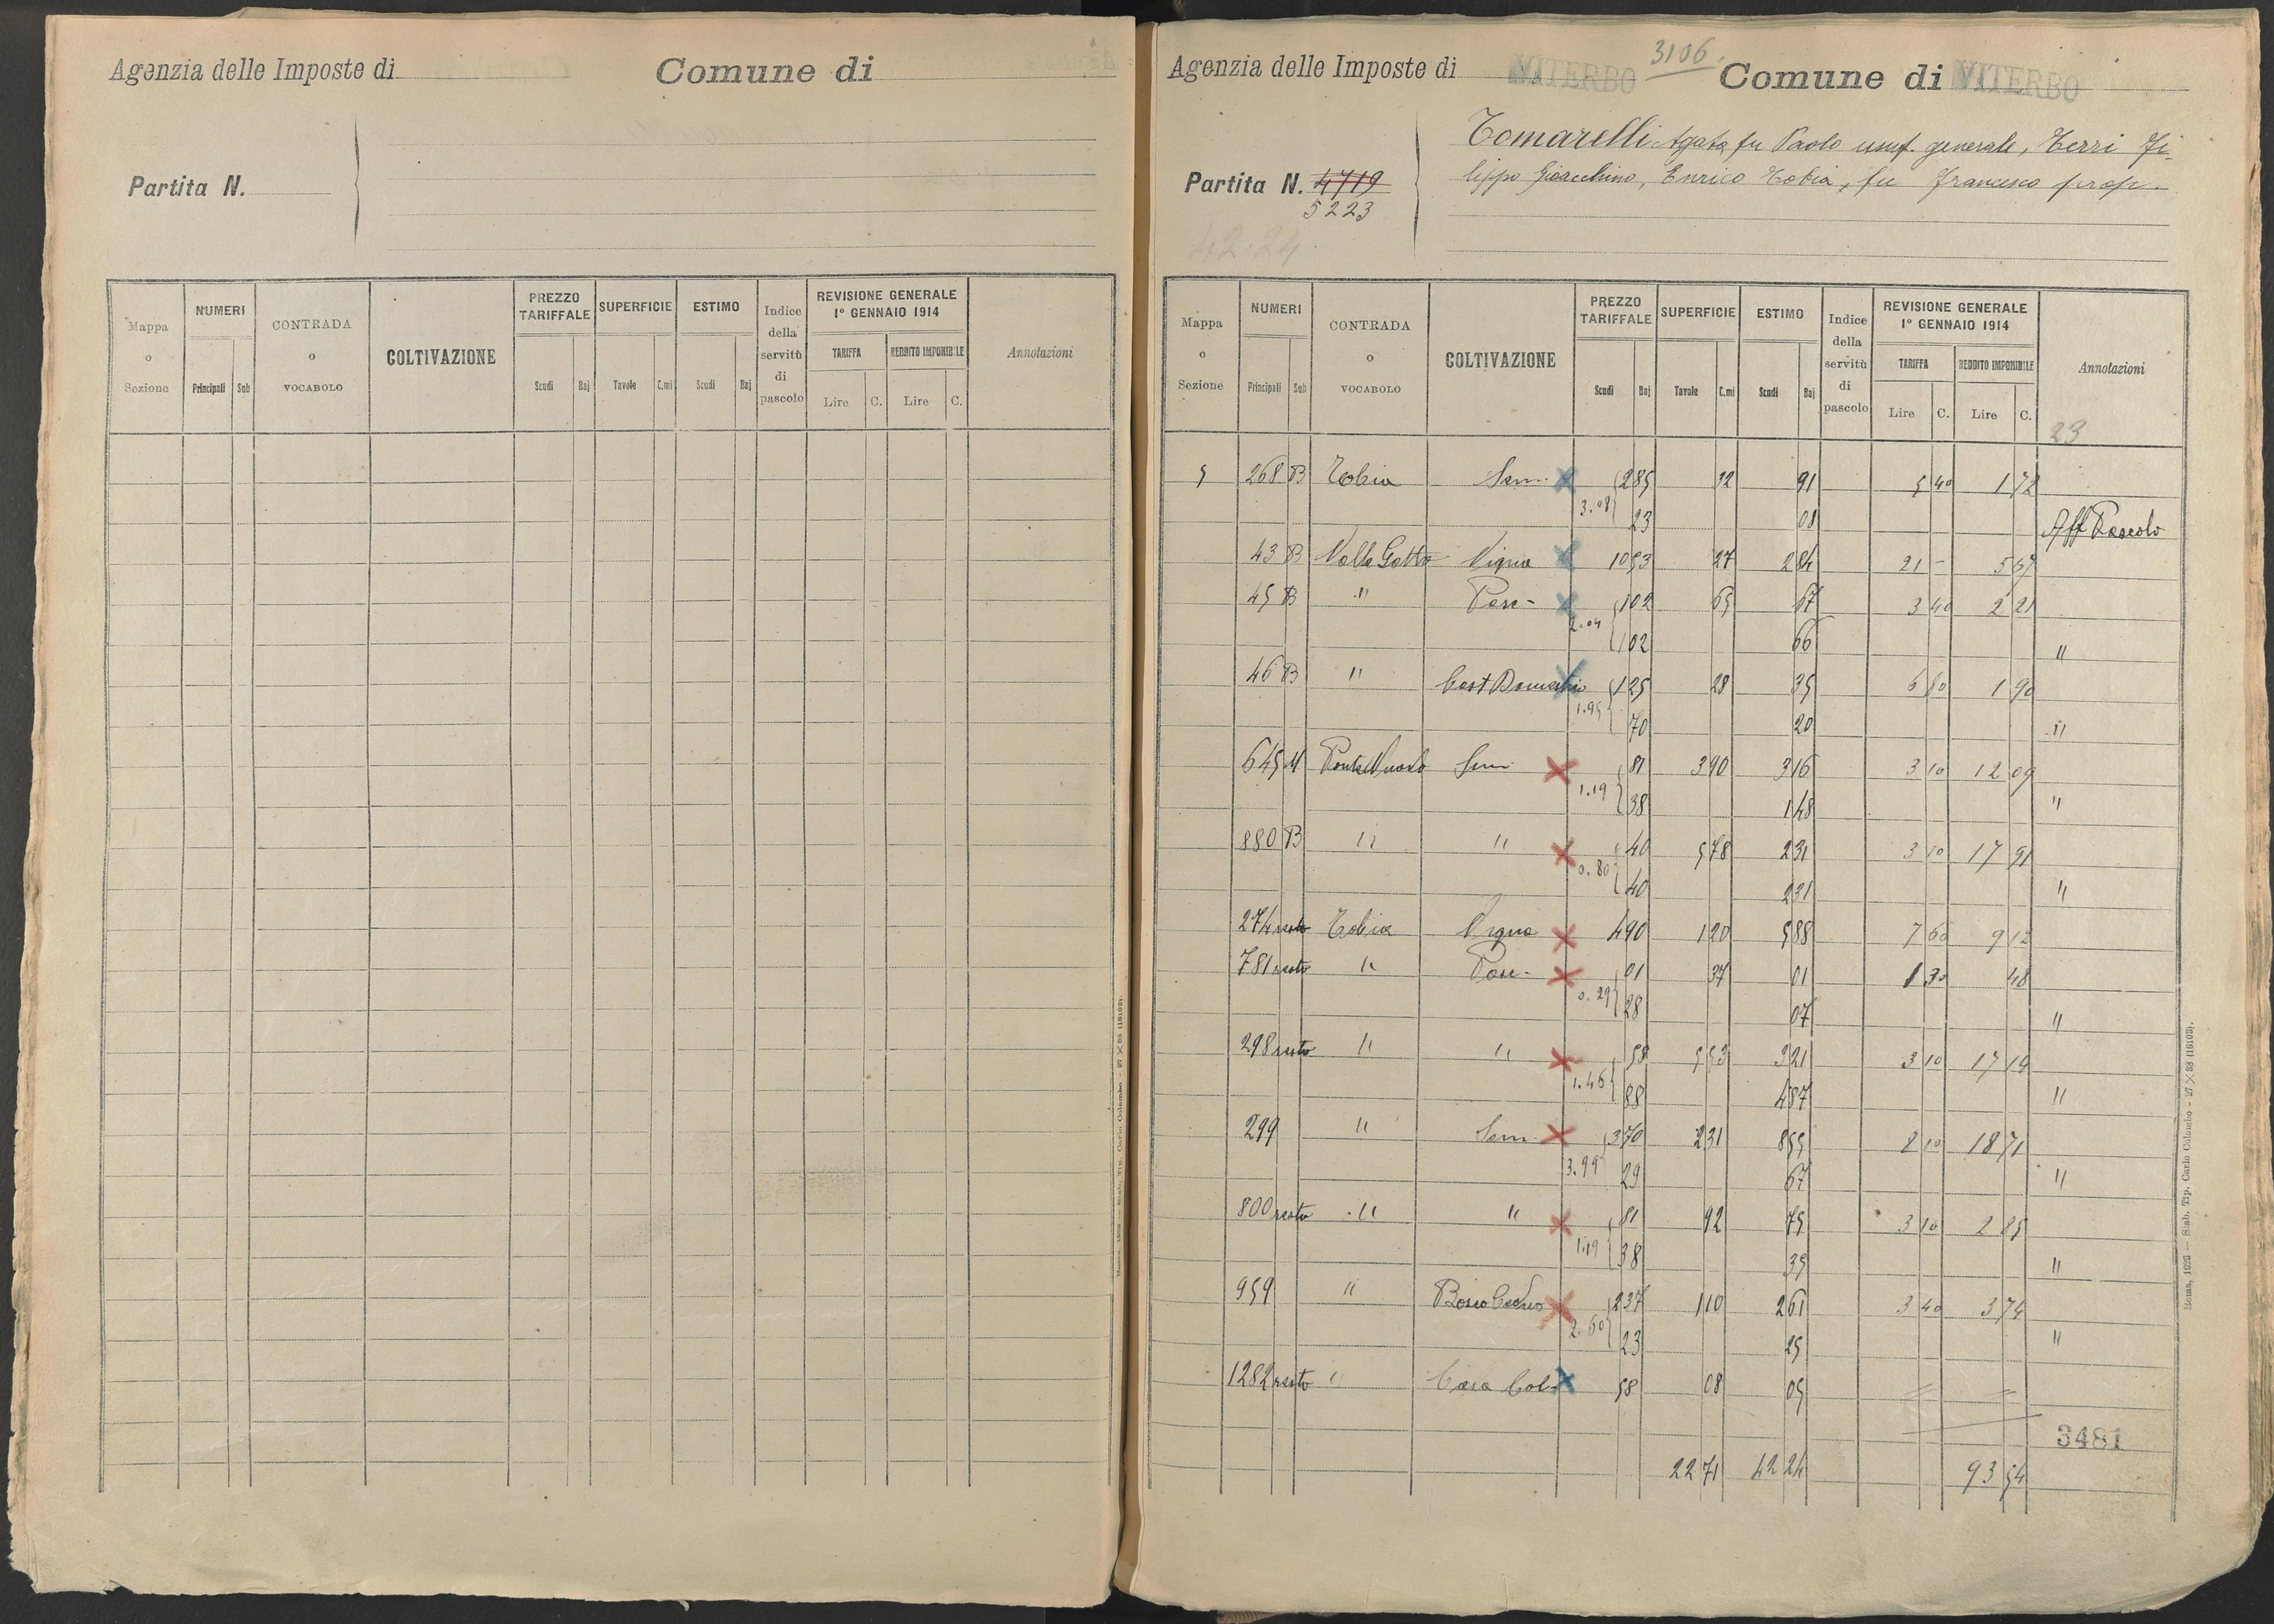 Agenzia delle Imposte di
Comune di
Partita N.
Mappa o Sezione
NUMERI
Principali Sub
CONTRADA o VOCABOLO
COLTIVAZIONE
PREZZO TARIFFALE
Scudi Baj
SUPERFICIE
Tavole C.mi
ESTIMO
Scudi Baj
Indice della servitù di pascolo
REVISIONE GENERALE
1° GENNAIO 1914
TARIFFA REDDITO IMPONIBILE
Lire C. Lire C.
Annotazioni
3106
Agenzia delle Imposte di VITERBO Comune di VITERBO
Tomarelli Agata fu Paolo usuf. generale, Terri Fi-
lippo Gioacchino, Enrico Tobia, fu Francesco prop.
Partita N. 4719
5223
42.24
Mappa o Sezione
NUMERI
Principali Sub
CONTRADA o VOCABOLO
COLTIVAZIONE
PREZZO TARIFFALE
Scudi Baj
SUPERFICIE
Tavole C.mi
ESTIMO
Scudi Baj
Indice della servitù di pascolo
REVISIONE GENERALE
1° GENNAIO 1914
TARIFFA REDDITO IMPONIBILE
Lire C. Lire C.
Annotazioni
23
5 268 B Tobia Sem. X 2 85 32 91 5 40 1 72
3.08 23 08 Aff Pascolo
43 B Valle Gatto Vigna X 10 53 27 2 84 21 - 5 67
45 B " Pasc- X 1 02 65 67 3 40 2 21
2.04 1 02 66 "
46 B " X 1 25 28 35 6 80 1 90
1.95 70 20 "
645 Ponte Nuovo Sem. X 81 3 90 3 16 3 10 12 09
1.19 38 1 48 "
880 B " " X 40 5 78 2 31 3 10 17 91
0.80 40 2 31 "
274 resto Tobia Vigna X 4 90 1 20 5 88 7 60 9 12
781 resto " Pasc- X 01 37 01 1 30 48
0.29 28 07 "
298 resto " " X 58 5 53 3 21 3 10 17 19
1.46 88 4 87 "
299 " Sem. X 3 70 2 31 8 55 8 10 18 71
3.99 29 67 "
800 resto " " X 81 92 75 3 10 2 85
1.19 38 35 "
959 " Bosco Ceduo X 2 37 1 10 2 61 3 40 3 74
2.60 23 25 "
1282 resto " Casa Col. X 58 08 05 = =
3481
22 71 42 24 93 54
Roma, 1923 — Stab. Tip. Carlo Colombo - 27 X 38 (16103).